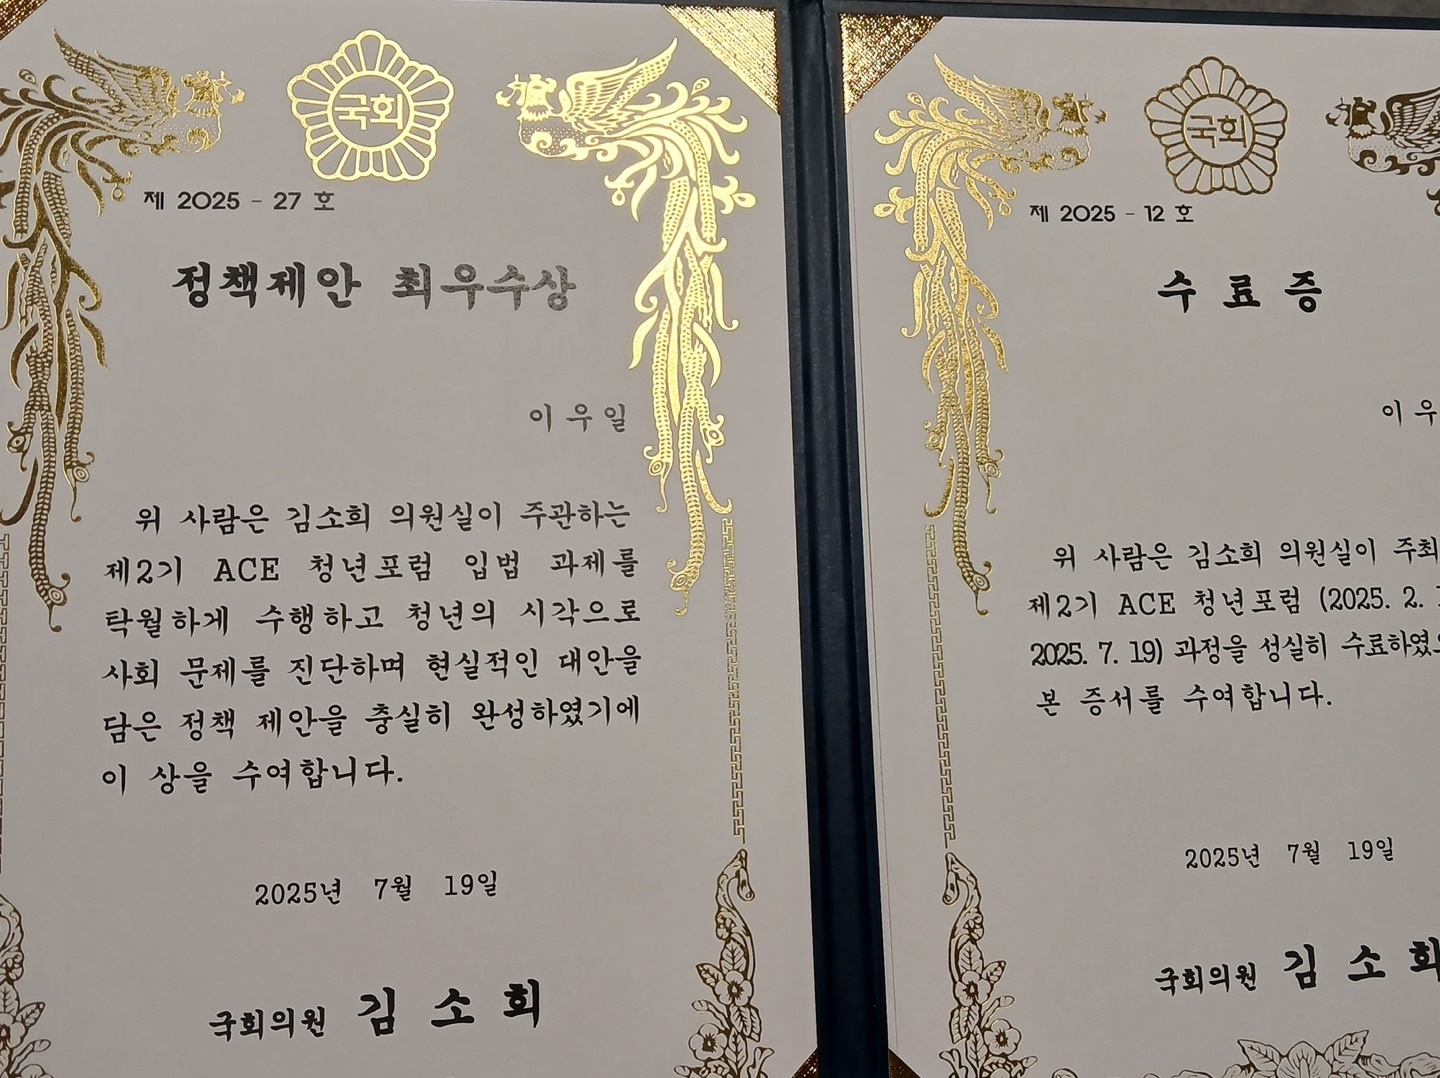 국회
제 2025 - 27 호
정책제안 최우수상
이 우 일
위 사람은 김소희 의원실이 주관하는
제2기 ACE 청년포럼 입법 과제를
탁월하게 수행하고 청년의 시각으로
사회 문제를 진단하며 현실적인 대안을
담은 정책 제안을 충실히 완성하였기에
이 상을 수여합니다.
2025년 7월 19일
국회의원 김 소 희
국회
제 2025 - 12 호
수 료 증
이 우
위 사람은 김소희 의원실이 주최
제2기 ACE 청년포럼 (2025. 2.
2025. 7. 19) 과정을 성실히 수료하였
본 증서를 수여합니다.
2025년 7월 19일
국회의원 김 소 희